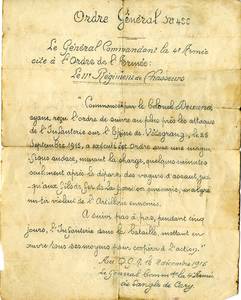 Ordre Général No 455
Le Général Commandant la 4e Armée
cite à l'Ordre de l'Armée:
Le 11e Régiment de Chasseurs
Commandé par le Colonel
ayant reçu l'ordre de suivre au plus près les attaques
de l'Infanterie sur l'Epine de Védegrange, le 25
Septembre 1915, a exécuté cet Ordre avec une
audace, menant la charge, quelques minutes
seulement après le départ des vagues d'assaut,
qu'aux fils de fer de la position ennemie,
malgré un tir violent de l'Artillerie ennemie.
A suivi pas à pas, pendant cinq
jours, l'Infanterie dans la Bataille, mettant
en œuvre tous ses moyens pour coopérer à l'action."
Au Q.G. le 1915
Le Général Commt la 4e Armée
de Langle de Cary.